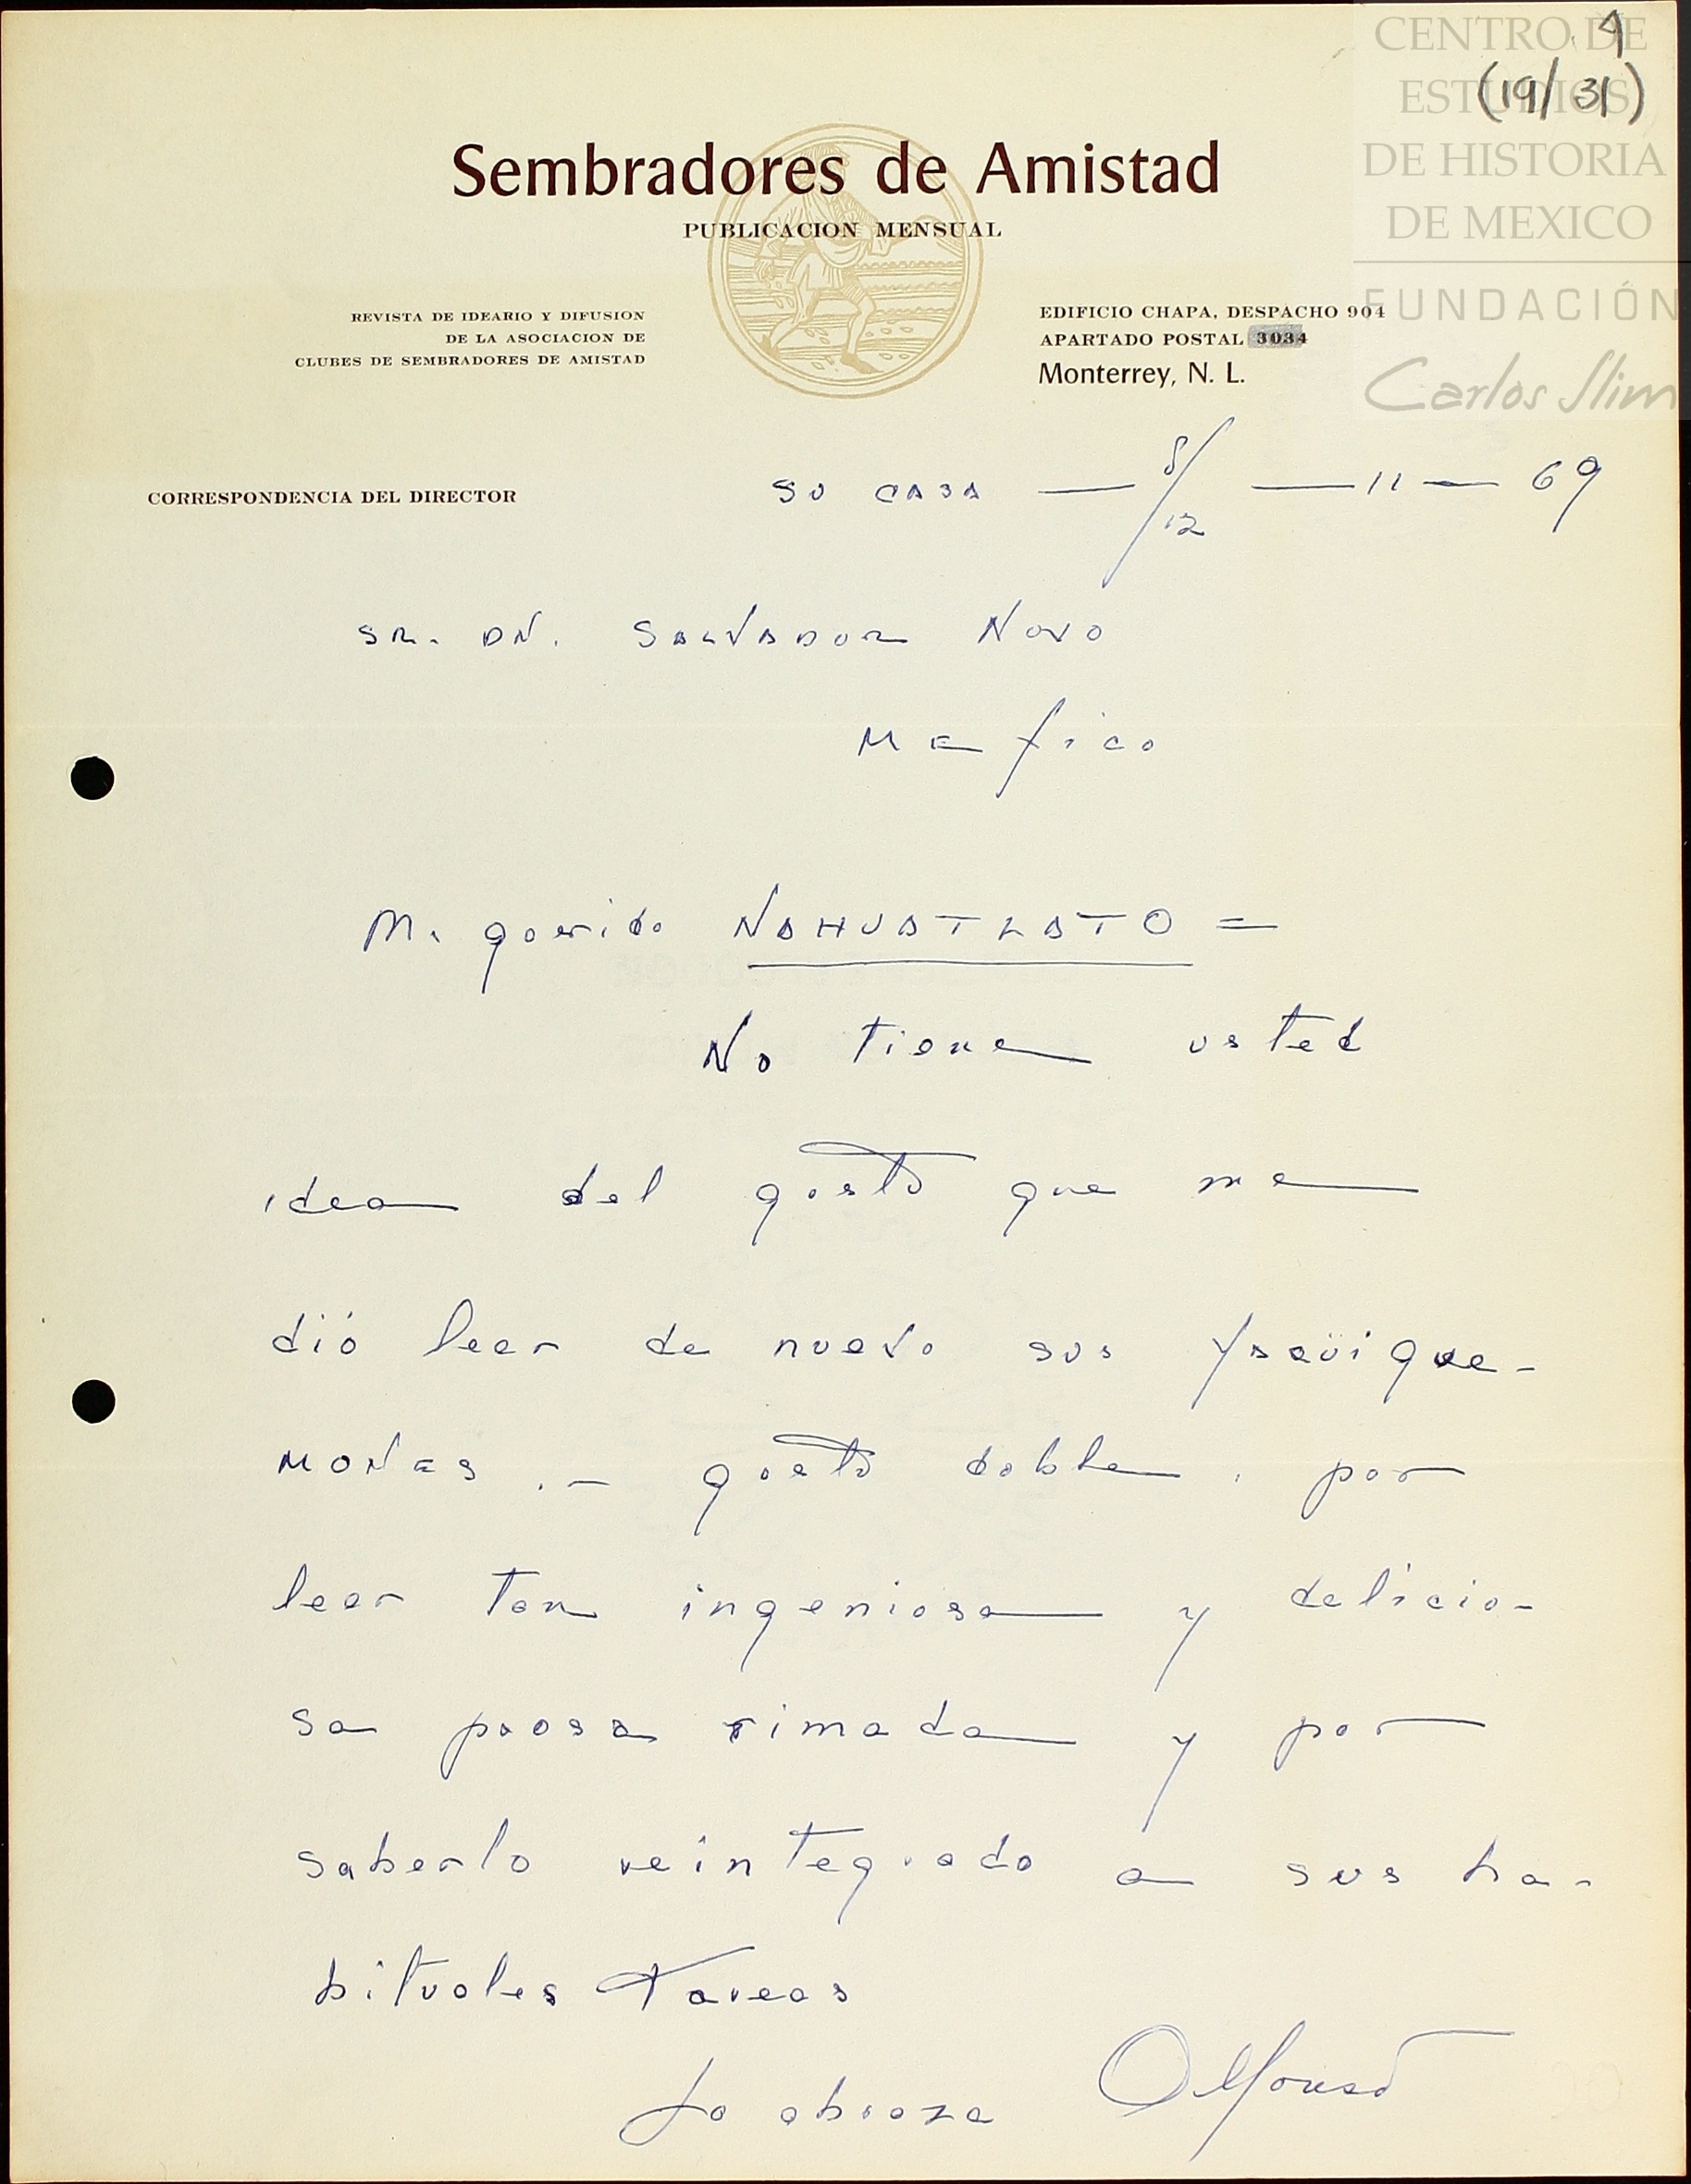 4
(19/31)
CENTRO DE
ESTUDIOS
DE HISTORIA
DE MEXICO
FUNDACIÓN
Carlos Slim
Sembradores de Amistad
PUBLICACION MENSUAL
REVISTA DE IDEARIO Y DIFUSION
DE LA ASOCIACION DE
CLUBES DE SEMBRADORES DE AMISTAD
EDIFICIO CHAPA, DESPACHO 904
APARTADO POSTAL 3034
Monterrey, N. L.
CORRESPONDENCIA DEL DIRECTOR
SU CASA — 8/12 — 11 — 69
SR. DN. SALVADOR NOVO
MEXico
Mi querido NAHUATLATO =
No tiene usted
idea del gusto que me
dió leer de nuevo sus
MONES .- gusto doble, por
leer tan ingeniosa y delicio-
sa prosa rimada y por
saberlo reintegrado a sus ha-
bituales tareas
Lo abraza Alfonso